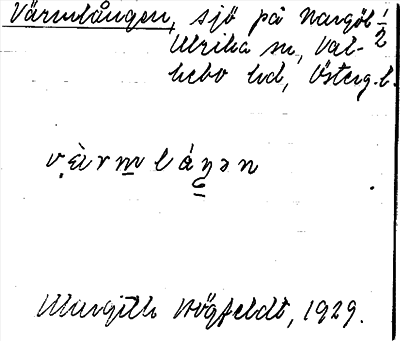 Värmlången, sjö på Nargöl 1/2
Ulrika sn, Val-
kebo hd, Österg. l.
v.ὰrmláŋən
Margith Högfeldt, 1929.